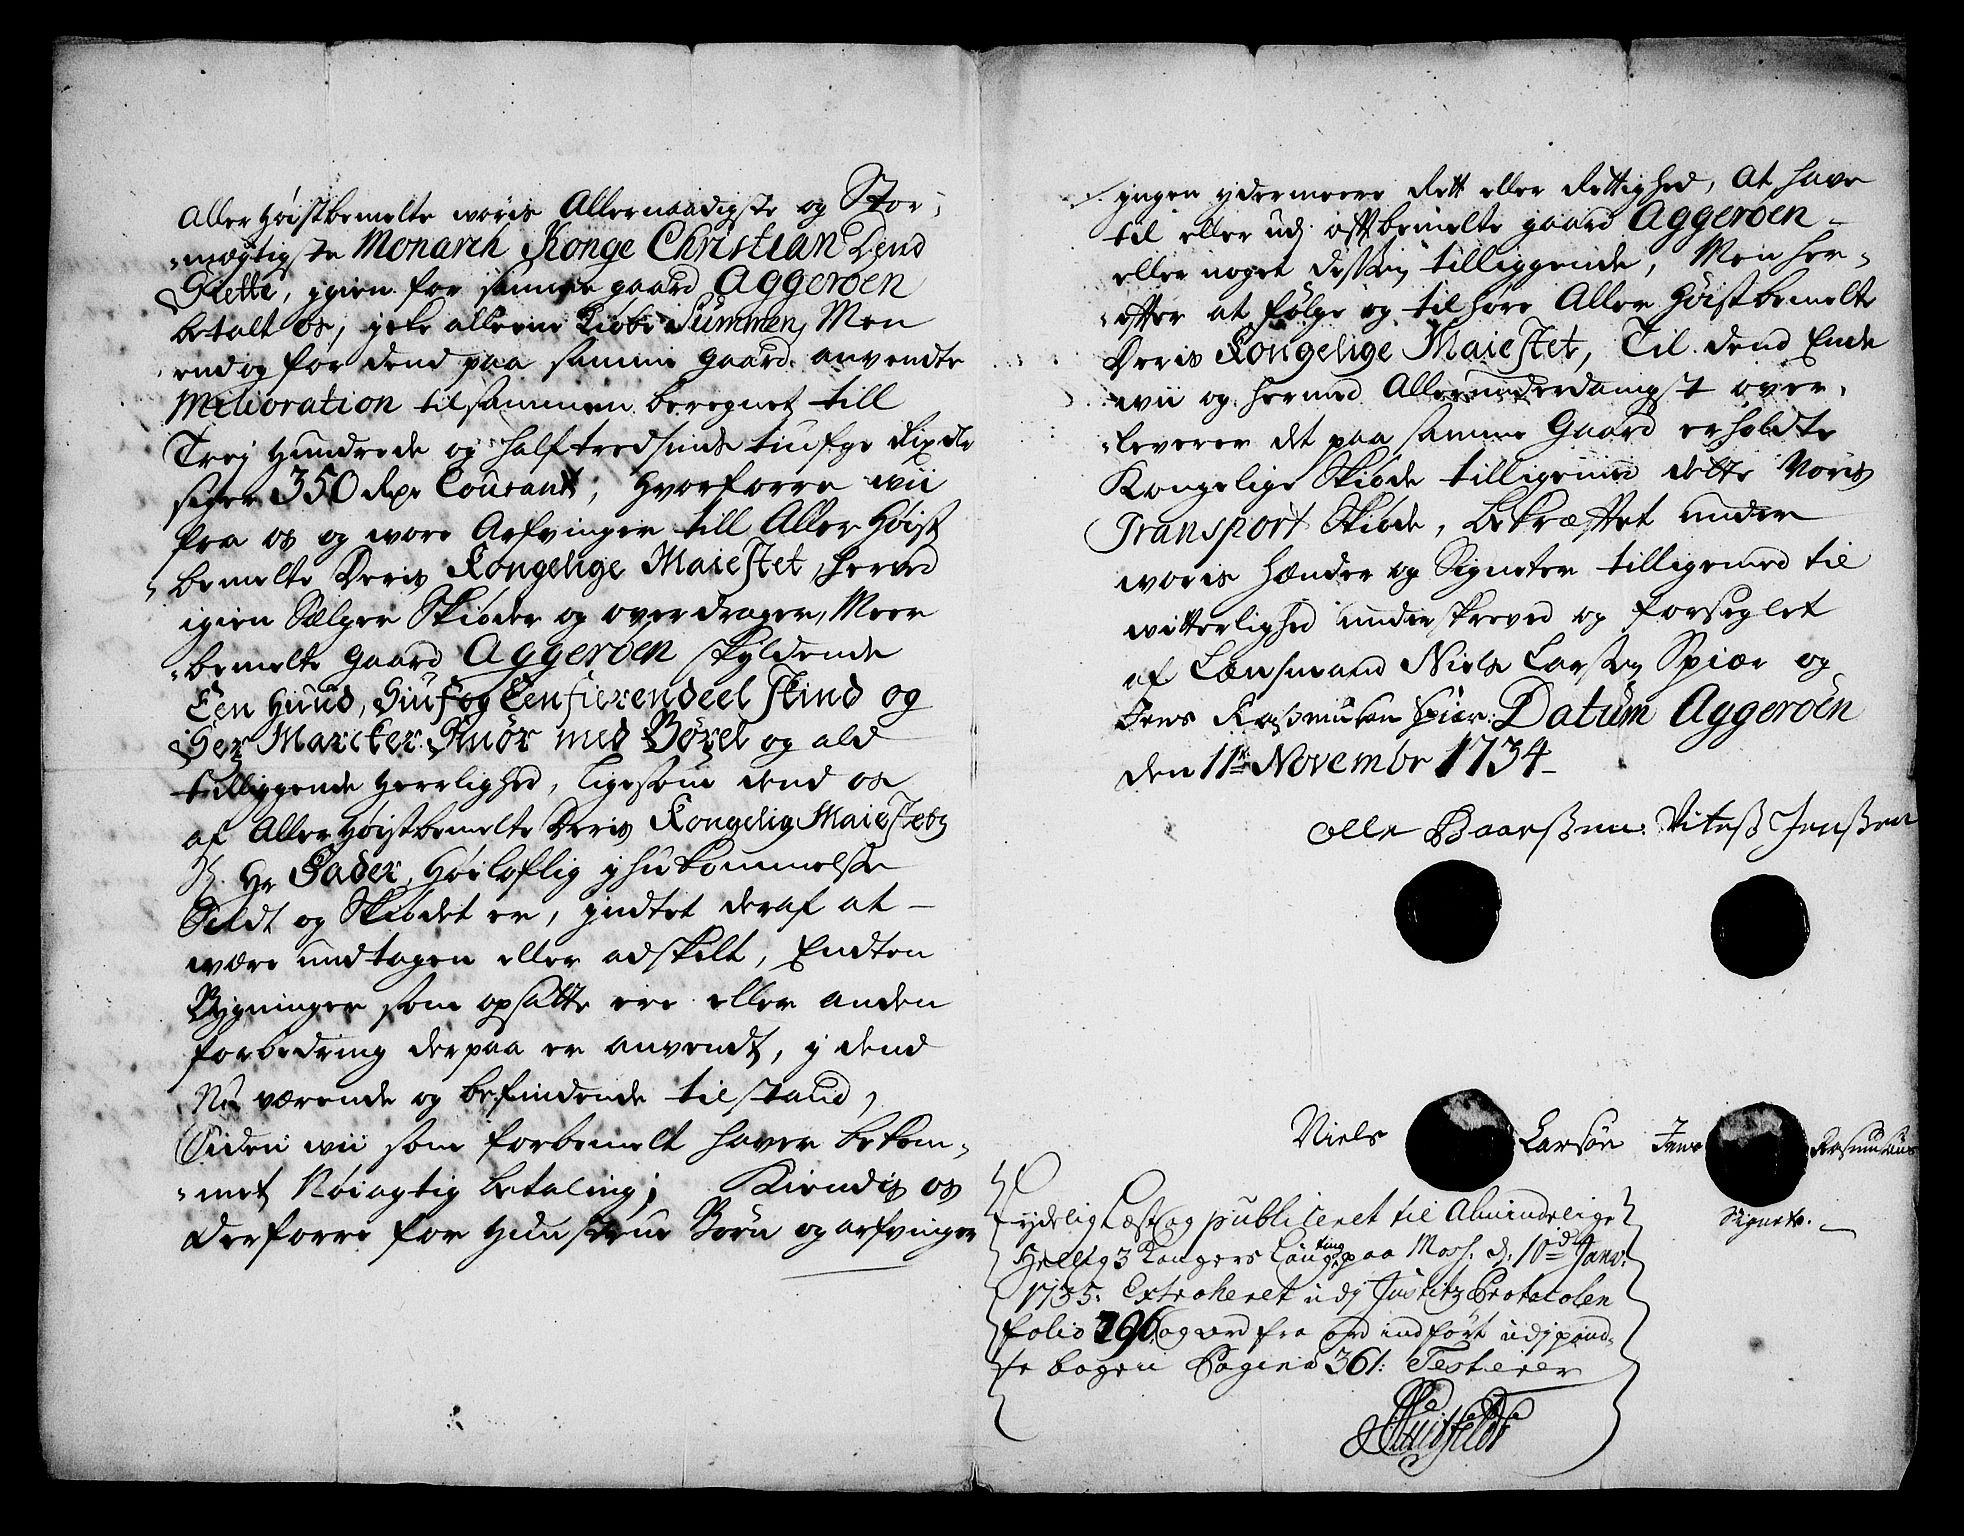 Aller Høistbemelte woris Allernaadigste og Stor-
-mægtigste Monarch Konge Christian Dend
Siette, igien for samme gaard Aggerøen
betalt os, jcke alleene Kiøbe Summen, Men
endog for dend paa samme gaard anvendte
Melioration tilsammen beregnet till
Trej Hundrede og halftredsindstiufge Rixdlr
siger 350 Rixr Courant; Hvorforre wii
fra os og wore Arfvinger till Aller Høist
-bemelte Deris Kongelige Maiestet, herved
igien Sælger Skiøder og overdrager, Meer
-bemelte Gaard Aggerøen skyldende
Een Huud, Siuf og Een fierendeel Skind og
Sex Marcker Smør med Bøxel og ald
tilliggende Herrlighed, ligesom dend os
af Aller Høistbemelte Deris Kongelig Maiestets
Hr Fader, Høiloflig jhukommelse
Soldt og Skiødet er, jndtet deraf at
være undtagen eller adskilt, Endten
Bygninger som opsatte ere eller anden
forbedring derpaa er anvendt, j dend
Nu værende og befindende tilstand,
Siden wii som forbemelt hafver bekom-
-met Nøiagtig betaling; Kiendis os
Derforre for Hunstrue Børn og arfvinger
jngen ydermeere Rett eller Rettighed, at have
til eller udj offtbemelte gaard Aggerøen
eller noget dessen tilliggende, Men her-
-effter at følge og tilhøre Aller Høistbemelte
Deris Kongelige Maiestet, Til dend Ende
wii og hermed Allerunderdanigst over-
-leverer det paa samme Gaard erholdte
Kongelige Skiøde tilligemed dette Voris
Transport Skiøde, bekræfftet under
woris hænder og Signeter tilligemed til
witterlighed underskreved og forseglet
af Lænsmand Niels Larssen Spiær og
Jens Rasmussen Spiær. Datum Aggerøen
den 11te Novembr 1734
Olle Baarssen Vitess Jenssen
Niels Larsøn Jens Rasmussens
Signete.
Tydelig Læst og publiceret til Almindelige
Hellig 3 Kongers Laugting paa Moss. d. 10de Janv:
1735: Extraheret udj Justitz Protocolen
folio 296 og ord fra ord indført udj pand-
te bogen Pagina 361: Testerer
HHuitfeldt